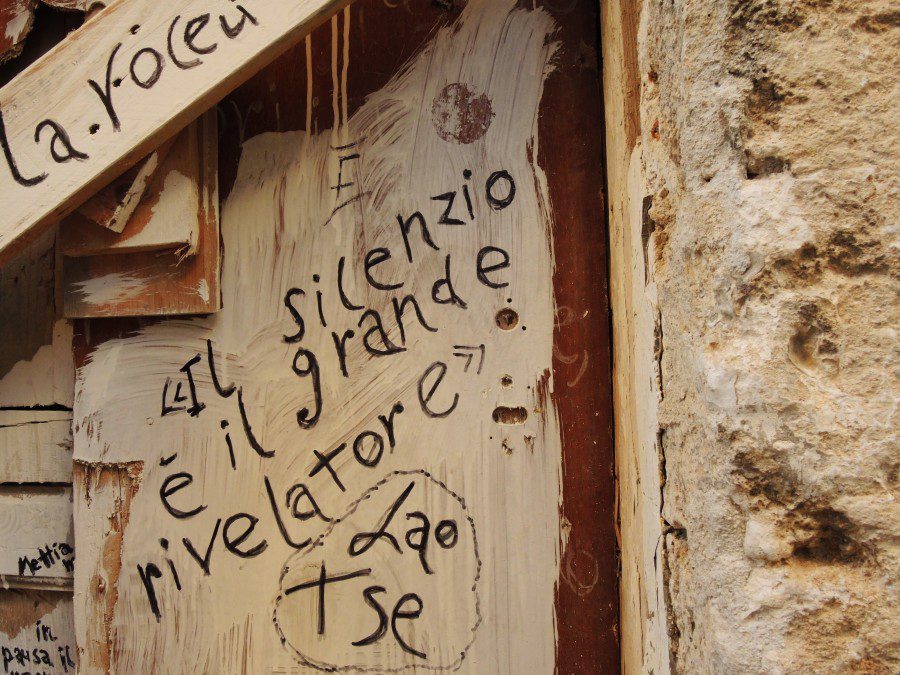 «Il silenzio
è il grande
rivelatore»
Lao
Tse
Mettia
in
pausa il